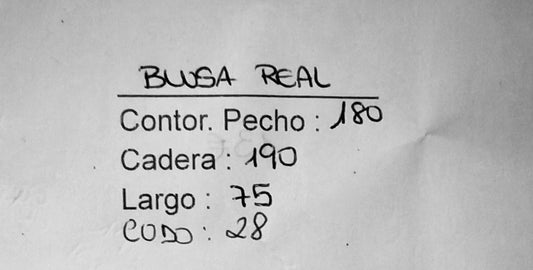 BLUSA REAL
Contor. Pecho : 180
Cadera : 190
Largo : 75
CODO : 28